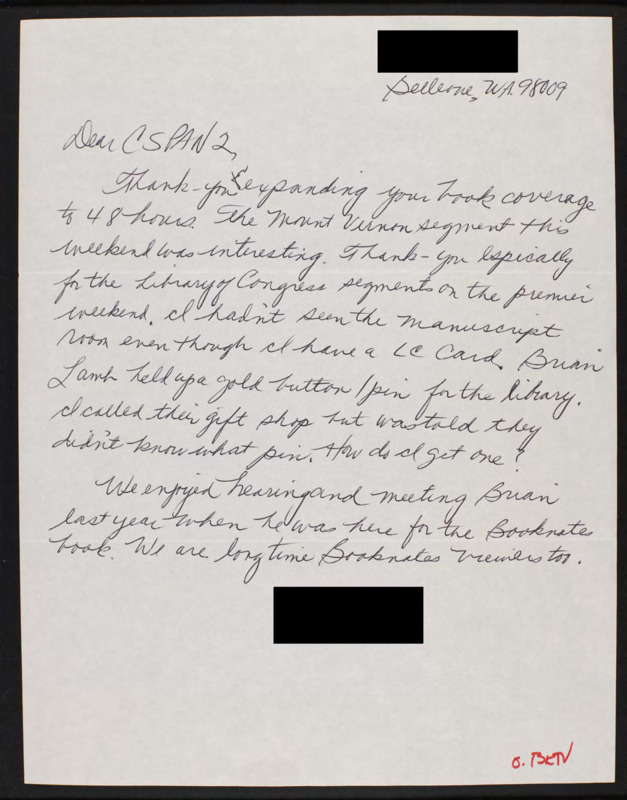 Bellevue, WA. 98009
Dear CSPAN 2,
Thank-you for expanding your book coverage
to 48 hours. The Mount Vernon segment this
weekend was interesting. Thank-you espically
for the Library of Congress segments on the premier
weekend. I hadn't seen the manuscript
room even though I have a LC Card. Brian
Lamb held up a gold button/pin for the library.
I called their gift shop but was told they
didn't know what pin. How do I get one?
We enjoyed hearing and meeting Brian
last year when he was here for the Booknotes
book. We are longtime Booknotes viewers too.
BKTV